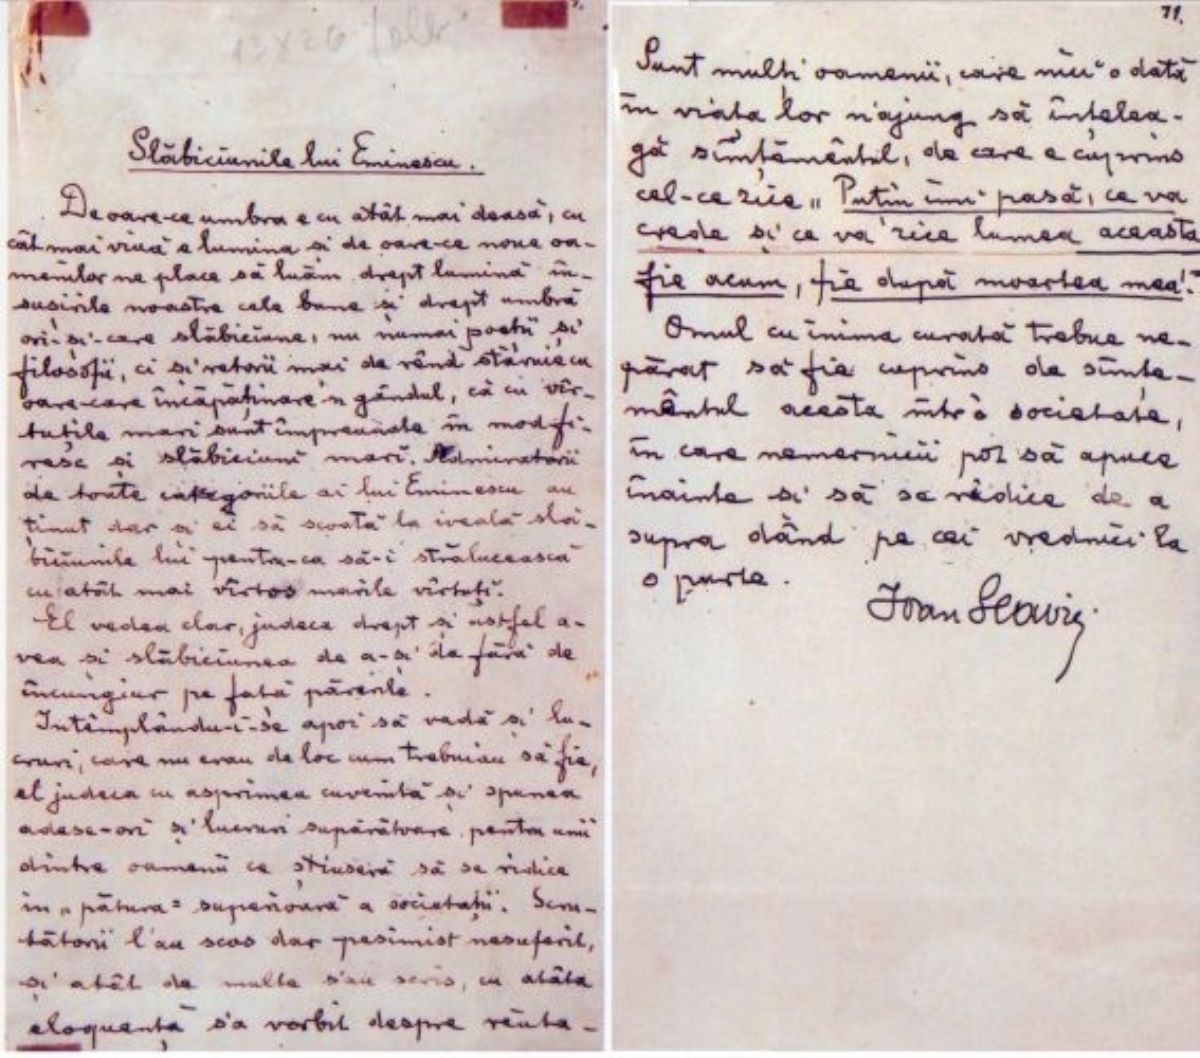 12 x 26
Slăbiciunile lui Eminescu.
De oare-ce umbra e cu atât mai deasă, cu
cât mai viuă e lumina și de oare-ce noue oa-
menilor ne place să luăm drept lumină în-
sușirile noastre cele bune și drept umbră
ori-și-care slăbiciune, nu numai poeții și
filosofii, ci și retorii mai de rênd stăruie cu
oare-care încăpăținare'n gândul, că cu vîr-
tuțile mari sunt împreunate în mod fi-
resc și slăbiciuni mari. Admiratorii
de toate categoriile ai lui Eminescu au
ținut dar și ei să scoată la iveală slă-
biciunile lui pentru-ca să-i strălucească
cu atât mai vîrtos marile vîrtuți.
El vedea clar, judeca drept și astfel a-
vea și slăbiciunea de a-și da fără de
încungiur pe față părerile.
Intêmplându-i-se apoi să vadă și lu-
cruri, care nu erau de loc cum trebuiau să fie,
el judeca cu asprimea cuvenită și spunea
adese-ori și lucruri supărătoare pentru unii
dintre oamenii ce știuseră să se ridice
în „pătura" superioară a societății. Scru-
tătorii l'au scos dar pesimist nesuferit,
și atât de multe s'au scris, cu atâta
eloquență s'a vorbit despre rěuta-
71.
Sunt mulți oamenii, care nici o dată
în viața lor n'ajung să înțelea-
gă sîmțěmêntul, de care e cuprins
cel-ce zice „Puțin îmi pasă, ce va
crede și ce va zice lumea aceasta
fie acum, fie după moartea mea!"
Omul cu inima curată trebue ne-
părat să fie cuprins de sîmțe-
mêntul acesta într'o societate,
în care nemernicii pot să apuce
înainte și să se rădice de a
supra dând pe cei vrednici la
o parte.
Ioan Slavici